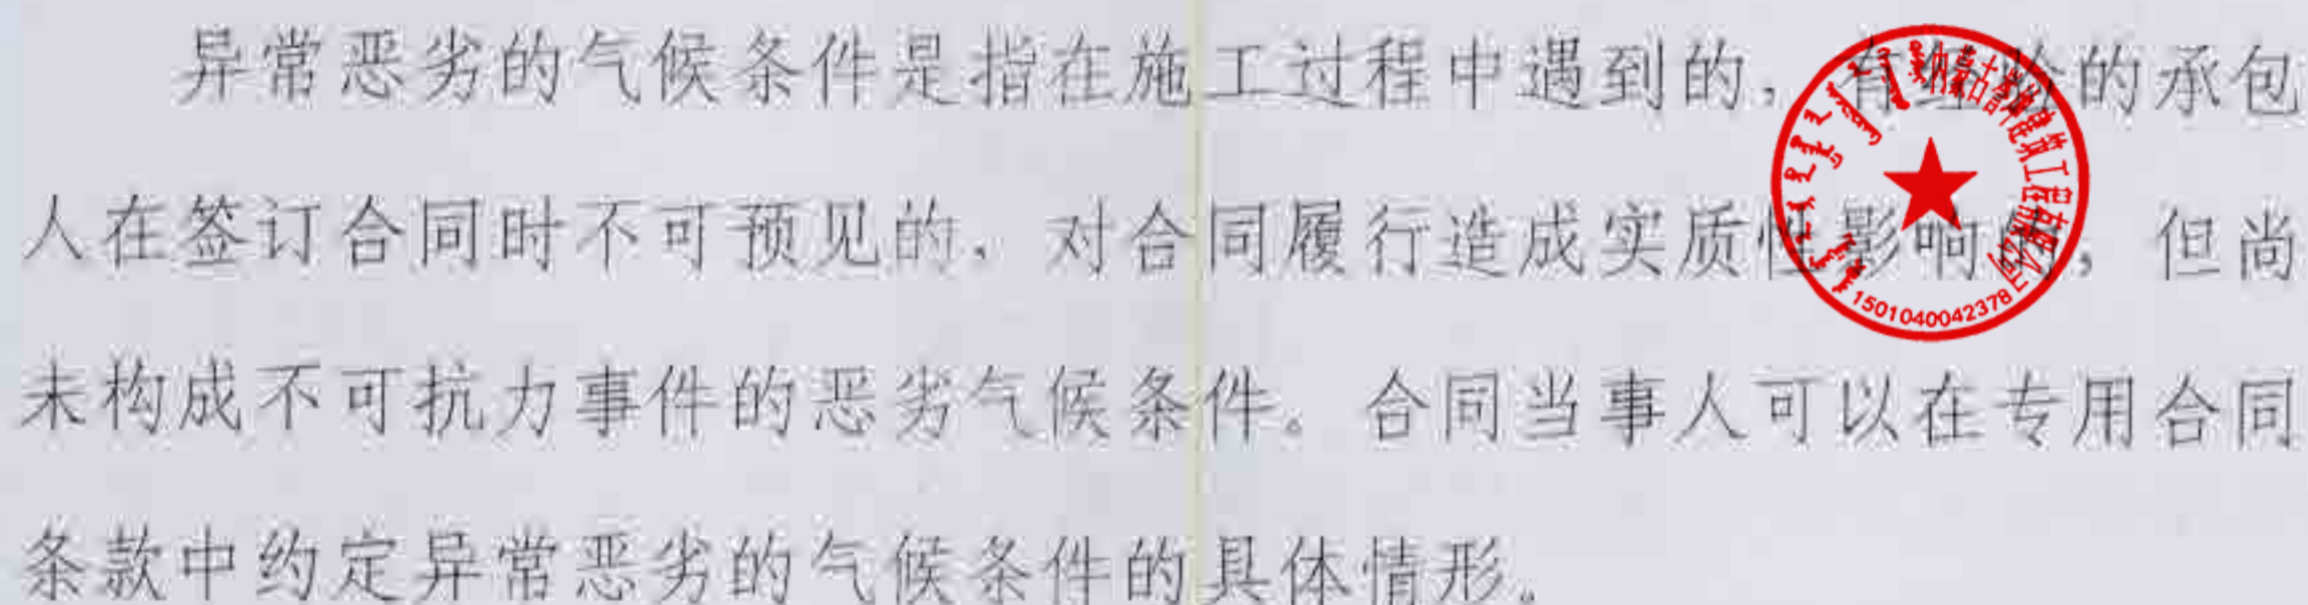 异常恶劣的气候条件是指在施工过程中遇到的，有经验的承包
人在签订合同时不可预见的，对合同履行造成实质性影响的，但尚
未构成不可抗力事件的恶劣气候条件。合同当事人可以在专用合同
条款中约定异常恶劣的气候条件的具体情形。
1501040042378